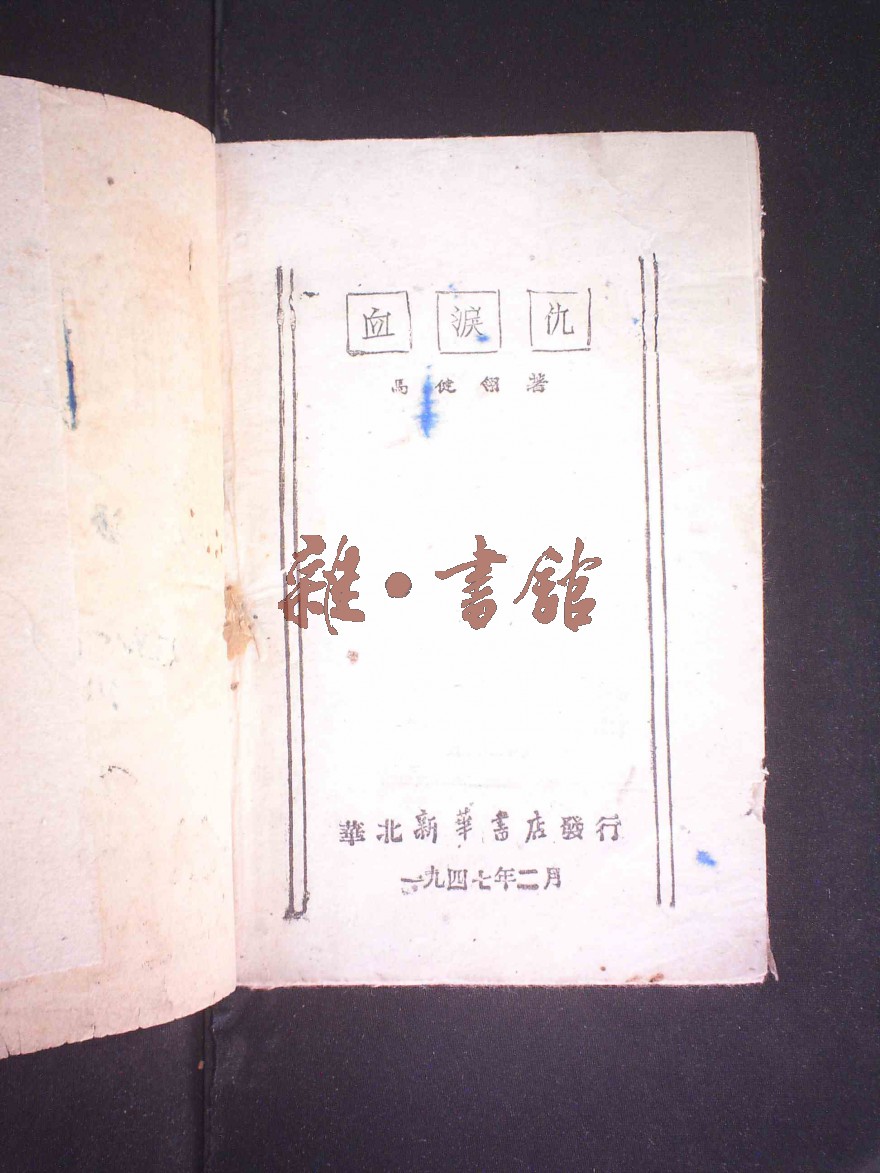 血淚仇
馬健翎著
雜·書舘
華北新華書店發行
一九四七年二月